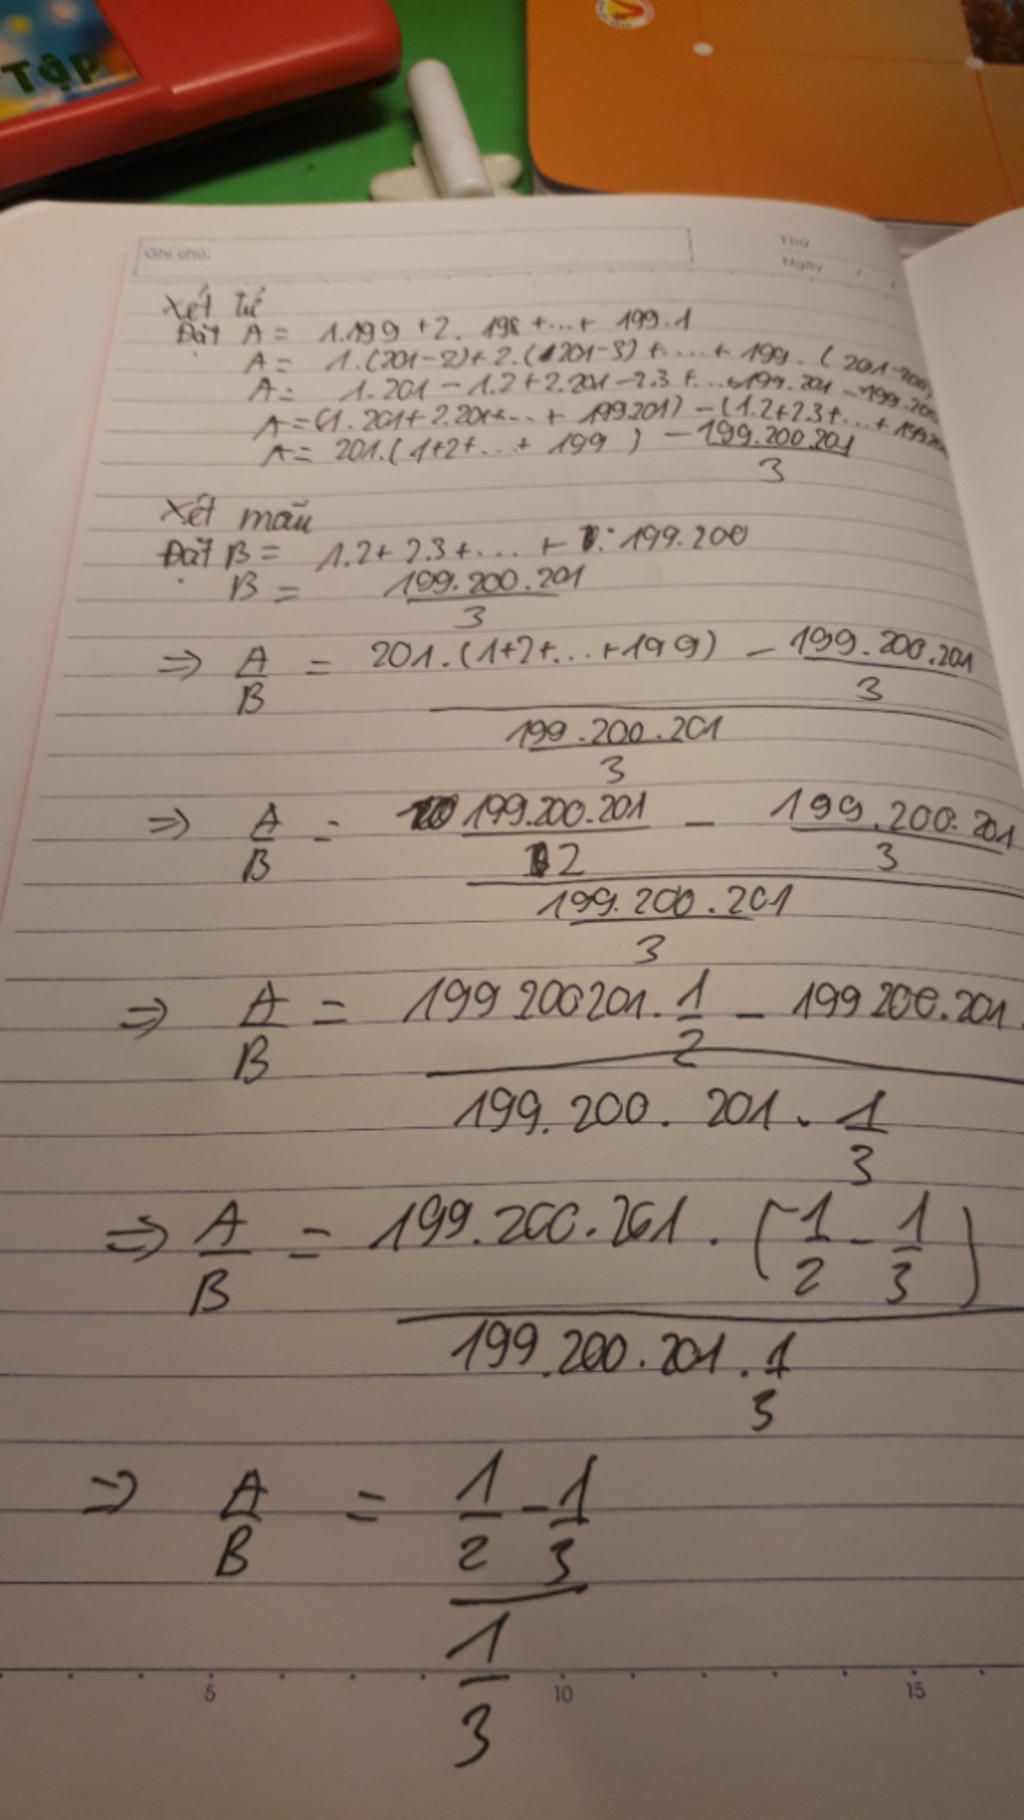 TẬP
Ghi chú:
Thứ
Ngày / /
Xét tử
Đặt A = 1.199 + 2. 198 +...+ 199.1
A = 1.(201-2)+ 2.(201-3) +....+ 199. (201-200)
A = 1.201 - 1.2+2.201-2.3 +...+199.201 - 199.200
A=(1.201+2.201+... + 199201) - (1.2+2.3+...+ 199.200
A = 201.(1+2+...+ 199 ) - 199.200.201
3
Xét mẫu
Đặt B = 1.2+ 2.3 +.... + 199.200
B = 199.200.201
3
=> A = 201.(1+2+...+199) - 199.200.201
B 3
199.200.201
3
=> A = 199.200.201 - 199.200.201
B 2 3
199.200.201
3
=> A = 199 200201. 1 - 199 200.201.
B 2
199.200. 201 . 1
3
=> A = 199.200.201 . (1 - 1)
B 2 3
199.200.201 . 1
3
=> A = 1 - 1
B 2 3
1
5 10 15
3